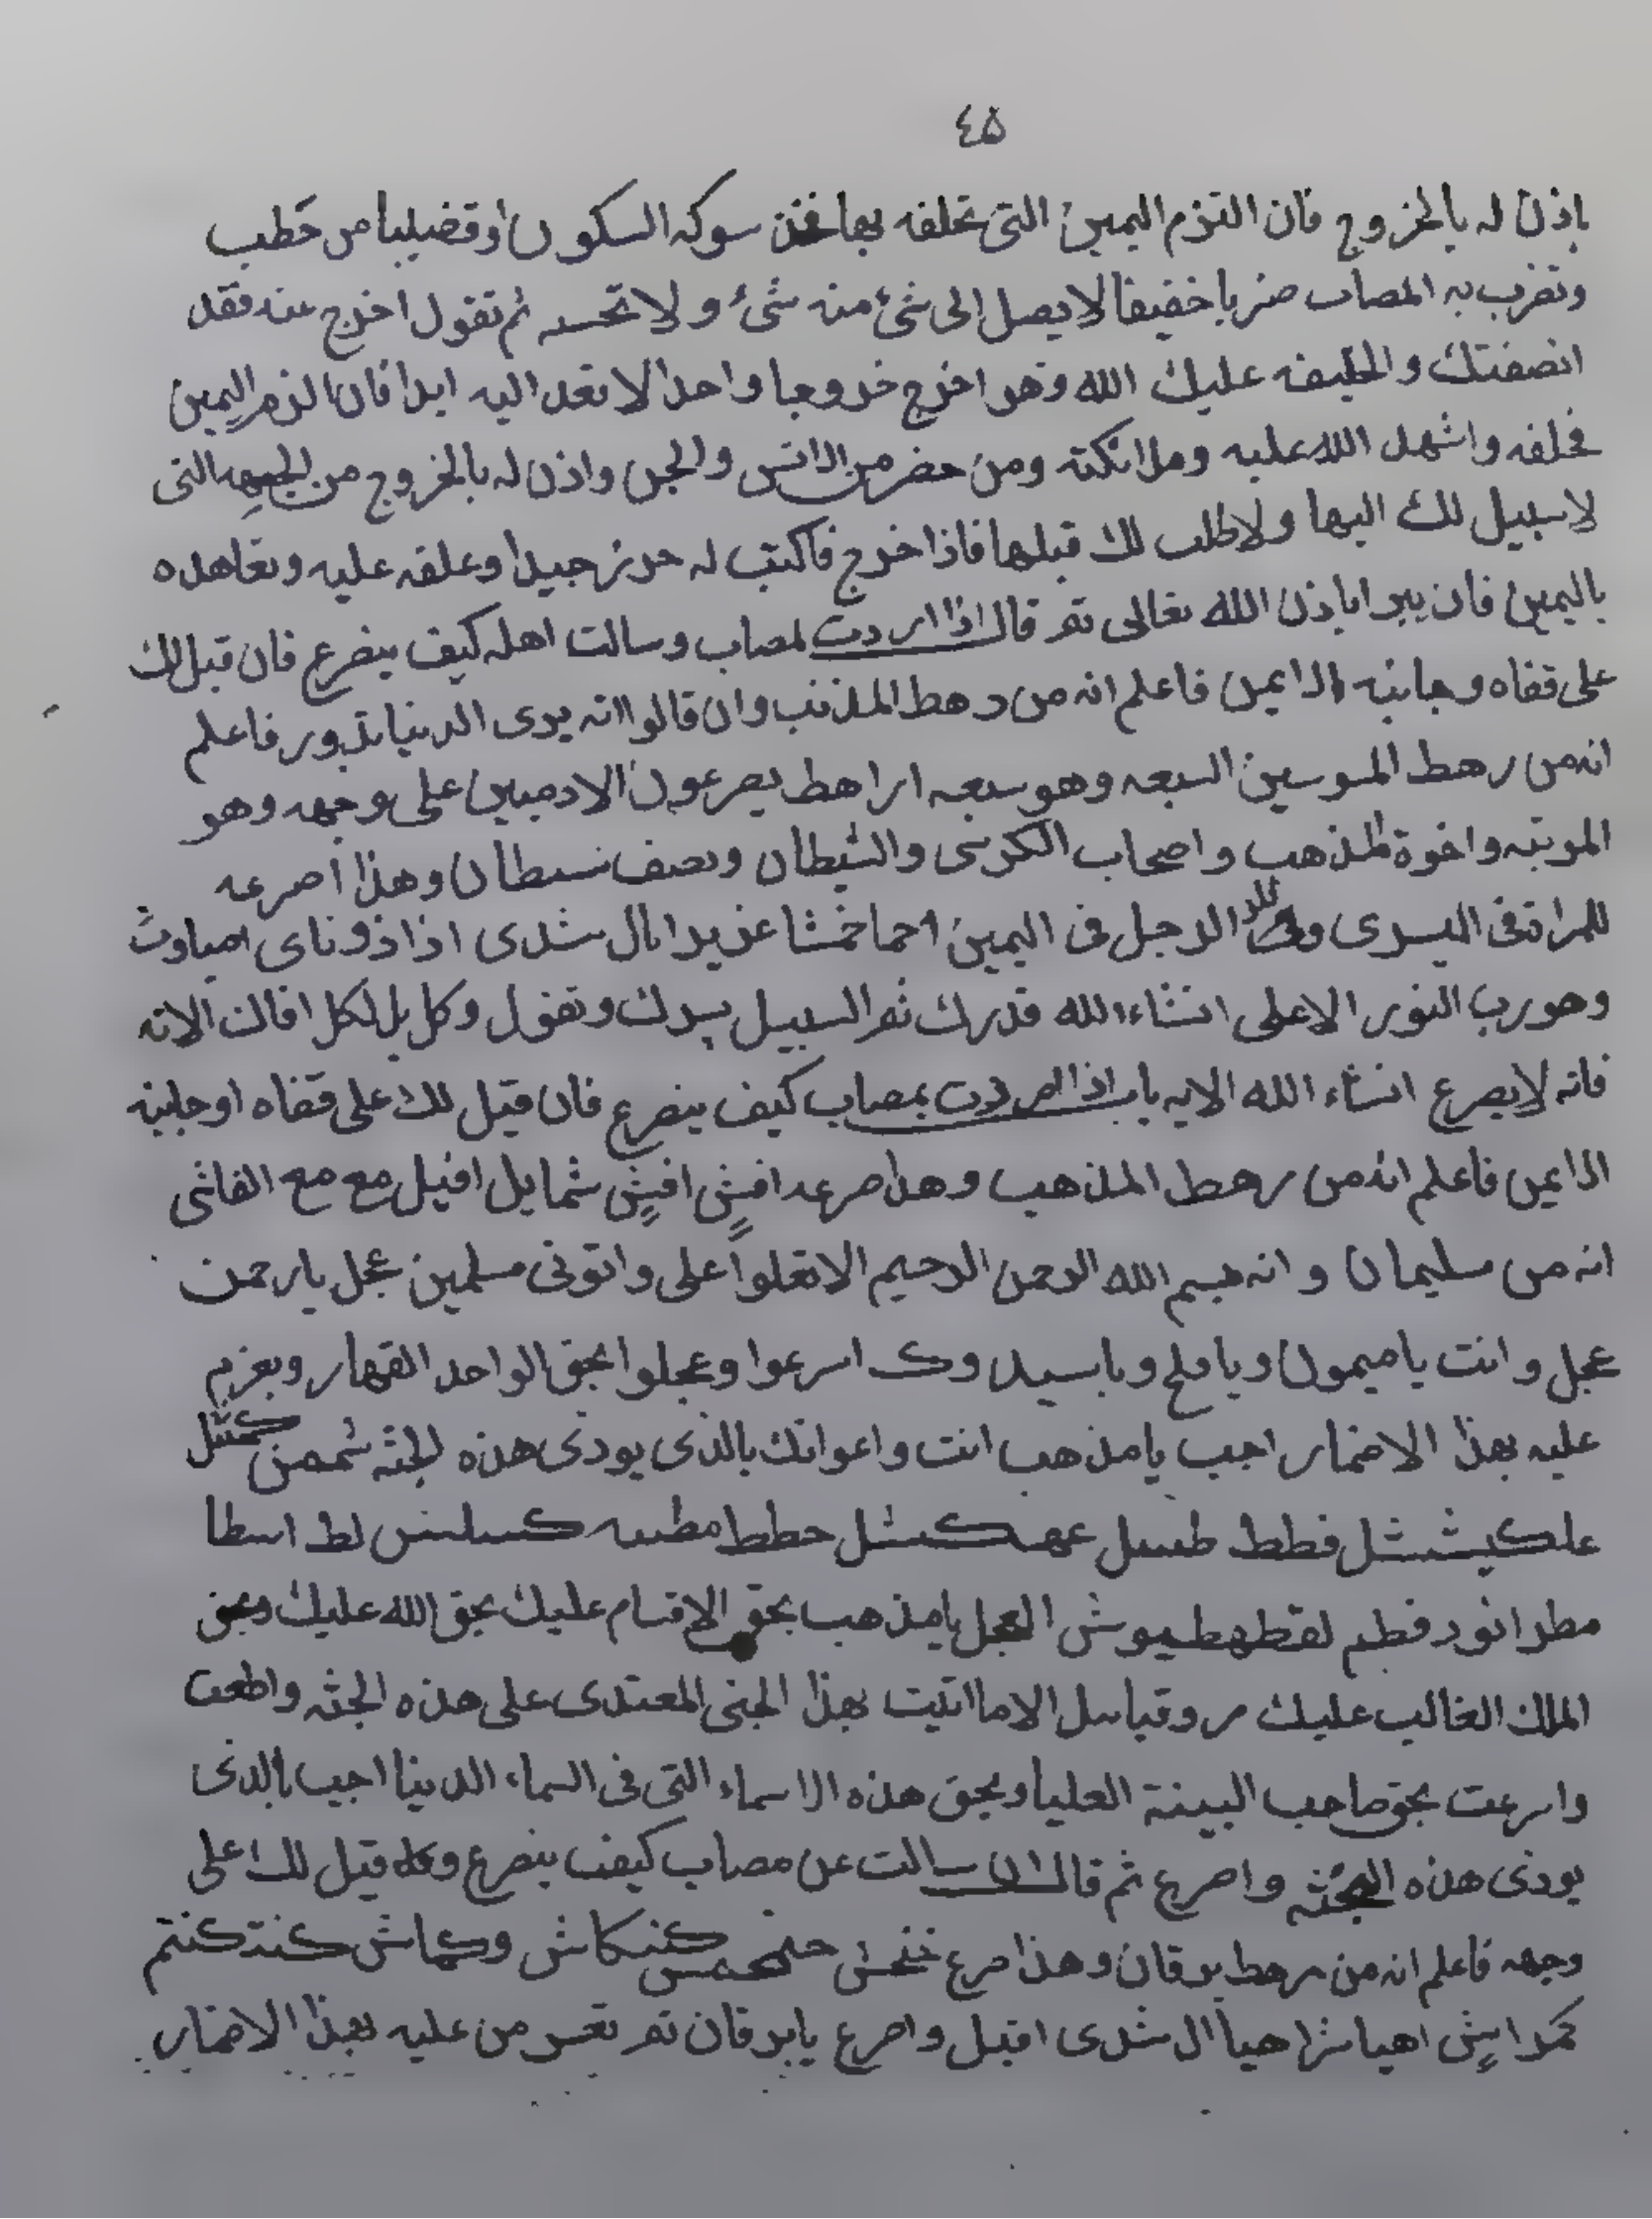 ٤٥
باذن له بالخروج فان التزم اليمين التى تحلفه بها فخذ سوكه السكون او قضيبا من حطب
وتضرب به المصاب ضربا خفيفا لا يصل الى شئ منه شئ ولا تحسه ثم تقول اخرج عنه فقد
انصفتك والخليفه عليك الله وهو اخرج خروجا واحدا لا تعد اليه ابدا فان الزم اليمين
فحلفه واشهد الله عليه وملائكته ومن حضر من الانس والجن واذن له بالخروج من الجهه التى
لا سبيل لك اليها ولا طلب لك قبلها فاذا خرج فاكتب له حرز جيدا وعلقه عليه وتعاهده
باليمين فان يبرا باذن الله تعالى ثم قال اذا اردت لمصاب وسالت اهله كيف ينصرع فان قبل لك
على قفاه وجانبه الايمن فاعلم انه من رهط المذنب وان قالوا انه يرى الدنيا تدور فاعلم
انه من رهط الموسين السبعه وهو سبعه اراهط يصرعون الادميين على وجهه وهو
الموتبه واخوة المذهب واصحاب الكرسى والشيطان ونصف شيطان وهذا اصرعه
للمراة فى اليسرى وفى الرجل فى اليمين احما خمشا عزيرا ال شدى اذا ذوناى اصباوت
وهو رب النور الاعلى انشاء الله قدرك ثم السبيل يسرك وتقول وكل بل لكل افاك الاته
فانه لا يصرع انشاء الله الايه باب اذا اردت بمصاب كيف ينصرع فان قيل لك على قفاه او جانبه
الايمن فاعلم انه من رهط المذهب وهذا صرعه افيش افيش شمايل اقبل مع مع الفاشى
انه من سليمان وانه بسم الله الرحمن الرحيم الا تعلوا على واتونى مسلمين عجل يا رحمن
عجل وانت يا ميمون ويا فلح ويا بسيد وك اسرعوا وعجلوا بحق الواحد القهار وبعزم
عليه بهذا الاضمار اجب يا مذهب انت واعوانك بالذى يوذى هذه الجثه كمثل
علكيششل فطط حطط لط اسطا
مطر انود فطم لقطهطيوش العجل يا مذهب بحق الاقسام عليك بحق الله عليك وبحق
الملك الغالب عليك مر وقياىل الا ما اتيت بهذا الجنى المعتدى على هذه الجثه واطعت
واسرعت بحق صاحب البينة العليا وبحق هذه الاسماء التى فى السماء الدنيا اجيب بالذى
يوذى هذه الجثه واصرع ثم قال ان سالت عن مصاب كيف ينصرع وكله قيل لك على
وجهه فاعلم انه من رهط برقان وهذا صرع كنكاش وكماش كنت كنتم
كمراىش اهيا شراهيا ال شدى اقبل واصرع يا برقان ثم تعسر من عليه بهذا الاضمار